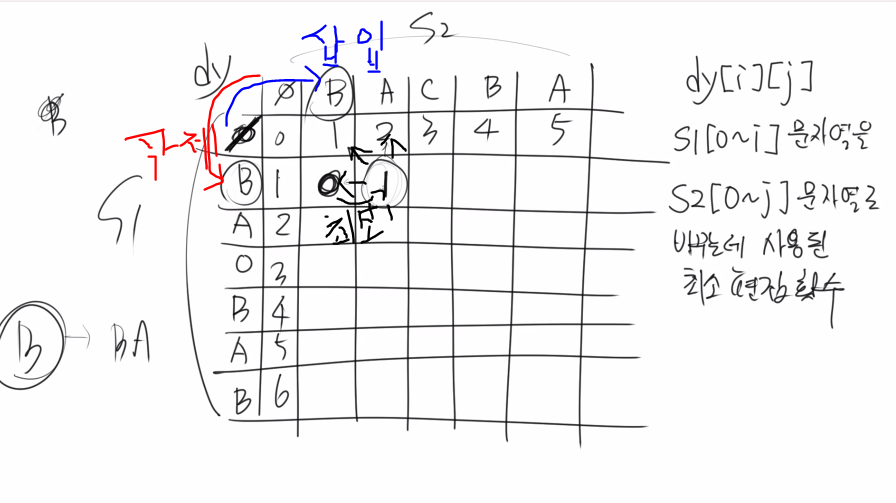 삽입
S2
dy
∅ B A C B A
∅ 0 1 2 3 4 5
B 1 0 1
A 2 최소
0 3
B 4
A 5
B 6
삭제
S1
B → BA
dy[i][j]
S1[0~i] 문자열을
S2[0~j] 문자열로
바꾸는데 사용된
최소 편집 횟수